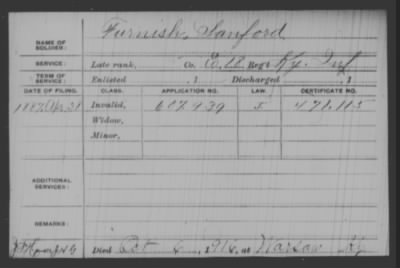 Furnish, Sanford
NAME OF SOLDIER:
SERVICE: Late rank, Co. Reg't Ky. Inf
TERM OF SERVICE: Enlisted , 1 Discharged , 1
DATE OF FILING. CLASS. APPLICATION NO. LAW. CERTIFICATE NO.
Invalid, 607.439 5 471.115
Widow,
Minor,
ADDITIONAL SERVICES:
REMARKS:
Died Oct 6, 1916, at Warsaw Ky